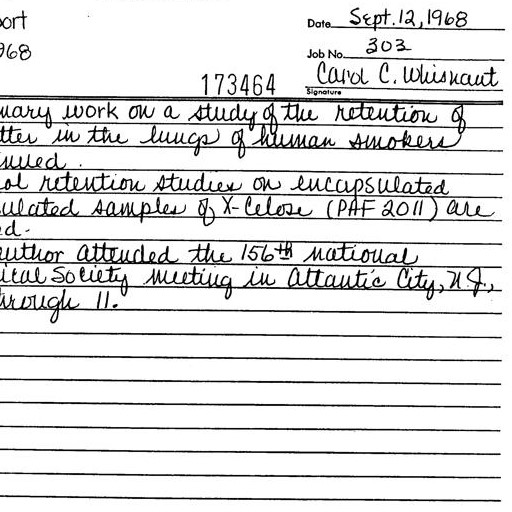 ort
Date Sept. 12, 1968
968
Job No. 303
Carol C. Whisnaut
Signature
173464
nary work on a study of the retention of
tter in the lungs of human smokers
inued.
ol retention studies on encapsulated
ulated samples of X-Celose (PAF 2011) are
d.
author attended the 156th national
ical Society meeting in Atlantic City, N.J.,
hrough 11.